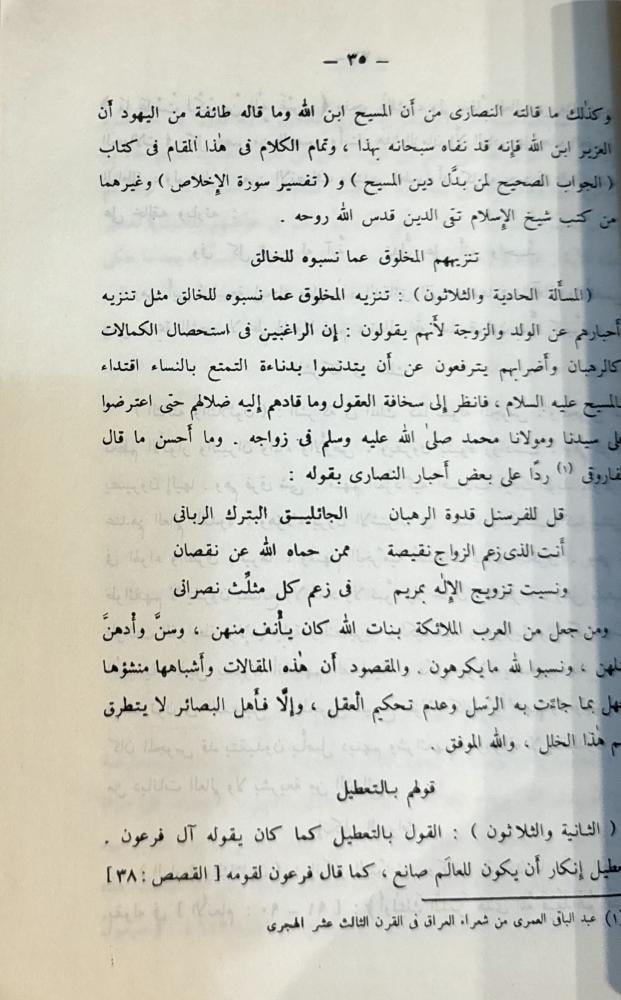 — ٣٥ —
وكذلك ما قالته النصارى من أن المسيح ابن الله وما قاله طائفة من اليهود أن
العزير ابن الله فإنه قد نفاه سبحانه بهذا ، وتمام الكلام فى هذا المقام فى كتاب
( الجواب الصحيح لمن بدَّل دين المسيح ) و ( تفسير سورة الإخلاص ) وغيرهما
من كتب شيخ الإسلام تقى الدين قدس الله روحه .
تنزيههم المخلوق عما نسبوه للخالق
(المسألة الحادية والثلاثون) : تنزيه المخلوق عما نسبوه للخالق مثل تنزيه
أحبارهم عن الولد والزوجة لأنهم يقولون : إن الراغبين فى استحصال الكمالات
كالرهبان وأضرابهم يترفعون عن أن يتدنسوا بدناءة التمتع بالنساء اقتداء
بالمسيح عليه السلام ، فانظر إلى سخافة العقول وما قادهم إليه ضلالهم حتى اعترضوا
على سيدنا ومولانا محمد صلى الله عليه وسلم فى زواجه . وما أحسن ما قال
الفاروقى (١) ردًّا على بعض أحبار النصارى بقوله :
قل للفرسنل قدوة الرهبان الجاثليـق البترك الربانى
أنت الذى زعم الزواج نقيصة ممن حماه الله عن نقصان
ونسيت تزويج الإله بمريم فى زعم كل مثلِّث نصرانى
ومن جعل من العرب الملائكة بنات الله كان يأنف منهن ، وسنَّ وأدهنَّ
وقتلهن ، ونسبوا لله ما يكرهون . والمقصود أن هذه المقالات وأشباهها منشؤها
الجهل بما جاءت به الرسل وعدم تحكيم العقل ، وإلَّا فأهل البصائر لا يتطرق
هذا الخلل ، والله الموفق .
قولهم بالتعطيل
( الثانية والثلاثون ) : القول بالتعطيل كما كان يقوله آل فرعون .
التعطيل إنكار أن يكون للعالَم صانع ، كما قال فرعون لقومه [ القصص : ٣٨ ]
(١) عبد الباقى العمرى من شعراء العراق فى القرن الثالث عشر الهجرى